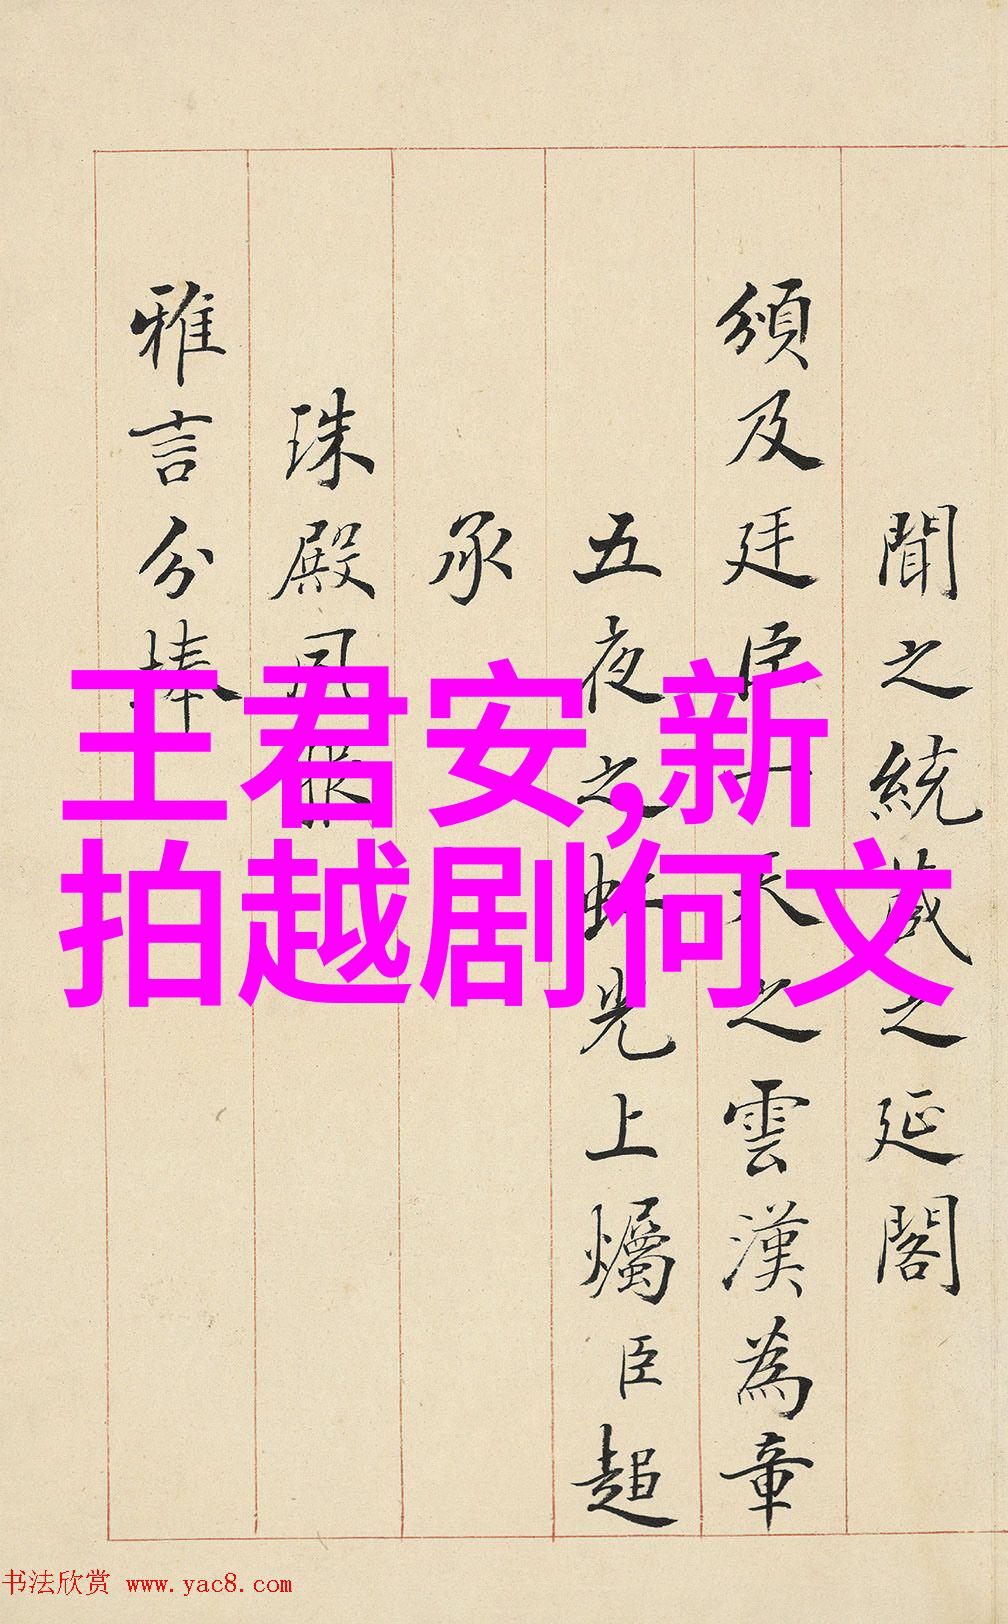 聞之統之延閣
頒及廷臣一天之雲漢為章
五夜之虹光上爥臣超
承
珠殿風
雅言分捧
王君安,新
拍越剧何文
书法欣赏 www.yac8.com